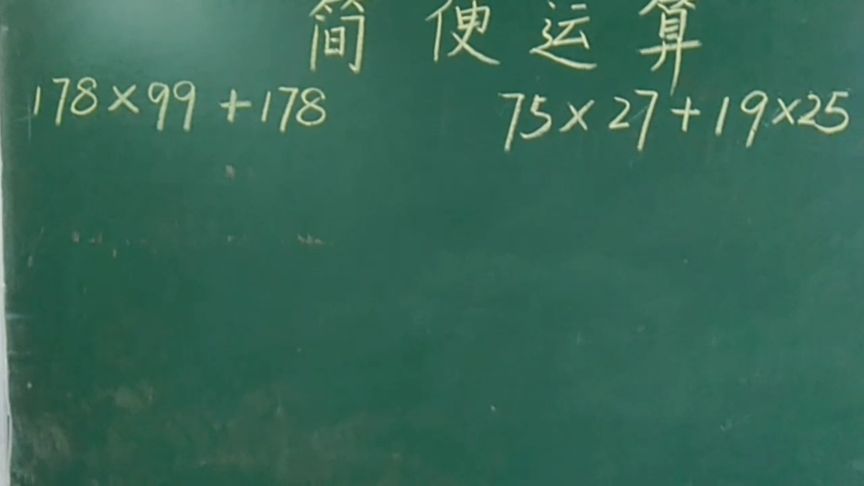 简便运算
178×99+178
75×27+19×25